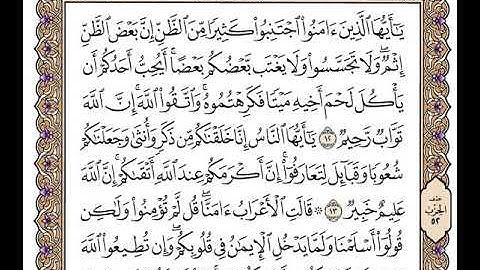 يَـٰٓأَيُّهَا ٱلَّذِينَ ءَامَنُوا۟ ٱجْتَنِبُوا۟ كَثِيرًا مِّنَ ٱلظَّنِّ إِنَّ بَعْضَ ٱلظَّنِّ
إِثْمٌ ۖ وَلَا تَجَسَّسُوا۟ وَلَا يَغْتَب بَّعْضُكُم بَعْضًا ۚ أَيُحِبُّ أَحَدُكُمْ أَن
يَأْكُلَ لَحْمَ أَخِيهِ مَيْتًا فَكَرِهْتُمُوهُ ۚ وَٱتَّقُوا۟ ٱللَّهَ ۚ إِنَّ ٱللَّهَ
تَوَّابٌ رَّحِيمٌ ١٢ يَـٰٓأَيُّهَا ٱلنَّاسُ إِنَّا خَلَقْنَـٰكُم مِّن ذَكَرٍ وَأُنثَىٰ وَجَعَلْنَـٰكُمْ
شُعُوبًا وَقَبَآئِلَ لِتَعَارَفُوٓا۟ ۚ إِنَّ أَكْرَمَكُمْ عِندَ ٱللَّهِ أَتْقَىٰكُمْ ۚ إِنَّ ٱللَّهَ
عَلِيمٌ خَبِيرٌ ١٣ ۞ قَالَتِ ٱلْأَعْرَابُ ءَامَنَّا ۖ قُل لَّمْ تُؤْمِنُوا۟ وَلَـٰكِن
قُولُوٓا۟ أَسْلَمْنَا وَلَمَّا يَدْخُلِ ٱلْإِيمَـٰنُ فِى قُلُوبِكُمْ ۖ وَإِن تُطِيعُوا۟ ٱللَّهَ
الحزب
٥٢